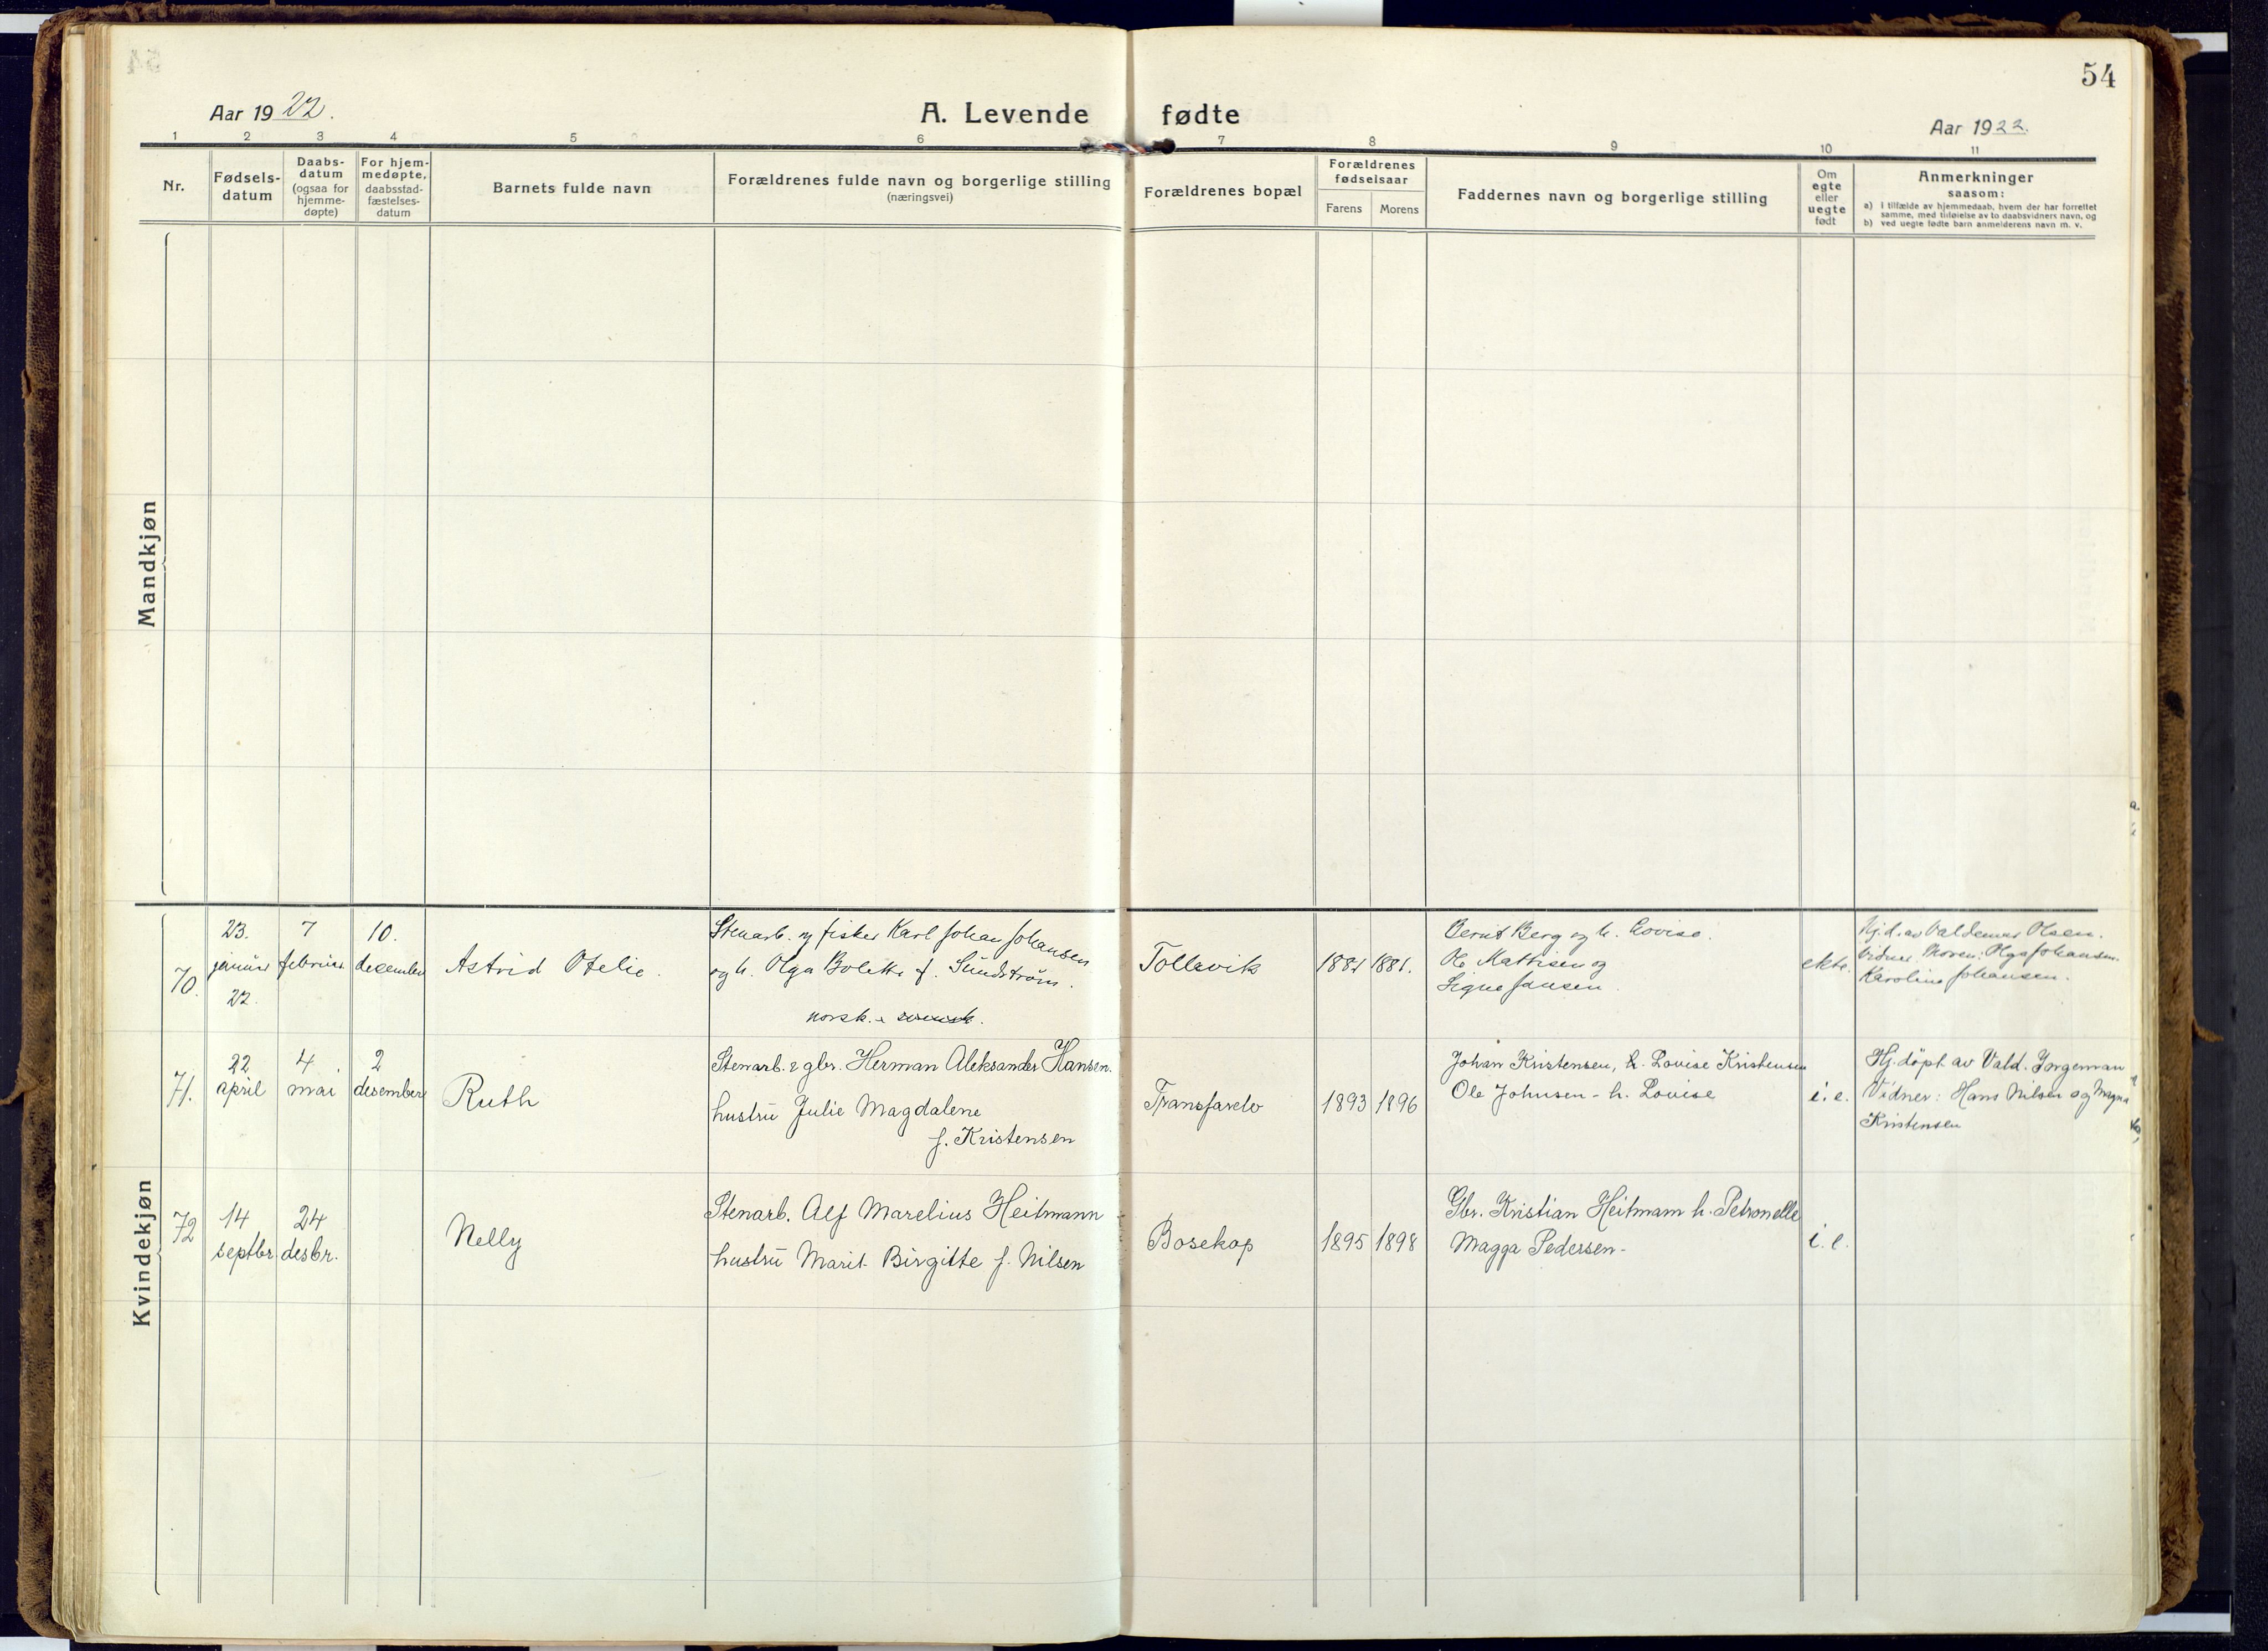 54
Aar 1922.
A. Levende fødte
Aar 1922.
1 2 3 4 5 6 7 8 9 10 11
Nr.
Fødsels-
datum
Daabs-
datum
(ogsaa for
hjemme-
døpte)
For hjem-
medøpte,
daabsstad-
fæstelses-
datum
Barnets fulde navn
Forældrenes fulde navn og borgerlige stilling
(næringsvei)
Forældrenes bopæl
Forældrenes
fødselsaar
Farens Morens
Faddernes navn og borgerlige stilling
Om
egte
eller
uegte
født
Anmerkninger
saasom:
a) I tilfælde av hjemmedaab, hvem der har forrettet
samme, med tilføielse av to daabsvidners navn, og
b) ved uegte fødte barn anmelderens navn m. v.
Mandkjøn
Kvindekjøn
70.
23.
januar
22.
7
februar
10.
december
Astrid Ofelie.
Stenarb. og fisker Karl Johan Johansen
og h. Olga Bolette f. Sundstrøm.
norsk.
Tollevik
1881 1881.
Bernt Berg og h. Lovise.
Ole Mathisen og
Signe Jansen
ekte.
Hj.d. av Valdemar Olsen.
Vidner: Moren: Olga Johansen.
Karoline Johansen.
71.
22
april
4
mai
2
desember
Ruth
Stenarb. & gbr. Herman Aleksander Hansen.
hustru Julie Magdalene
f. Kristensen
Transfarelv
1893 1896
Johan Kristensen, h. Lovise Kristensen
Ole Johnsen - h. Lovise
i. e.
Hj. döpt av Vald. Jørgeman
Vidner: Hans Nilsen og Magna
Kristensen
72
14
septbr.
24
desbr.
Nelly
Stenarb. Alf Marelius Heitmann
hustru Marit Birgitte f. Nilsen
Bosekop
1895 1898
Gbr. Kristian Heitmann h. Petronelle
Magga Pedersen -
i. e.